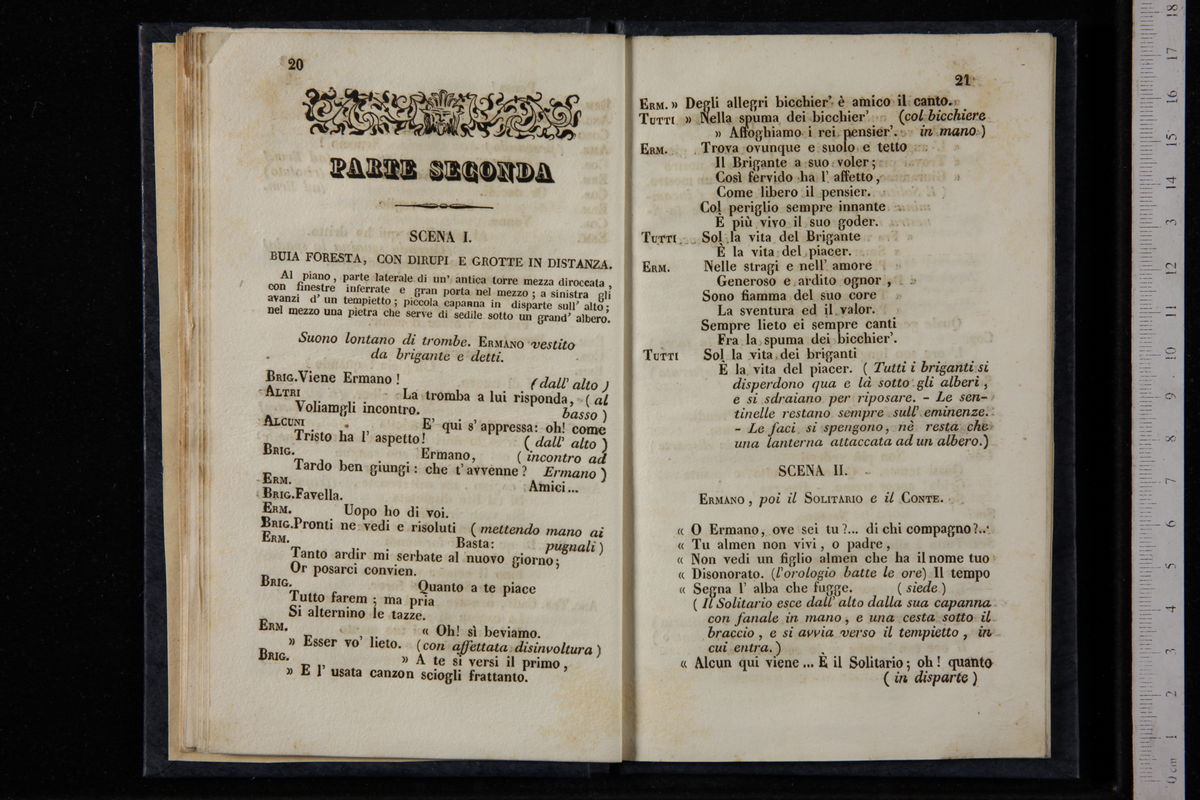 20
PARTE SECONDA
SCENA I.
BUIA FORESTA, CON DIRUPI E GROTTE IN DISTANZA.
Al piano, parte laterale di un' antica torre mezza diroccata,
con finestre inferrate e gran porta nel mezzo; a sinistra gli
avanzi d' un tempietto; piccola capanna in disparte sull' alto;
nel mezzo una pietra che serve di sedile sotto un grand' albero.
Suono lontano di trombe. ERMANO vestito
da brigante e detti.
BRIG. Viene Ermano! (dall' alto)
ALTRI La tromba a lui risponda, (al
Voliamgli incontro. basso)
ALCUNI E' qui s' appressa: oh! come
Tristo ha l' aspetto! (dall' alto)
BRIG. Ermano, (incontro ad
Tardo ben giungi: che t' avvenne? Ermano)
ERM. Amici...
BRIG. Favella.
ERM. Uopo ho di voi.
BRIG. Pronti ne vedi e risoluti (mettendo mano ai
ERM. Basta: pugnali)
Tanto ardir mi serbate al nuovo giorno;
Or posarci convien.
BRIG. Quanto a te piace
Tutto farem; ma pria
Si alternino le tazze.
ERM. « Oh! sì beviamo.
» Esser vo' lieto. (con affettata disinvoltura)
BRIG. » A te si versi il primo,
» E l' usata canzon sciogli frattanto.
21
ERM. » Degli allegri bicchier' è amico il canto.
TUTTI » Nella spuma dei bicchier' (col bicchiere
» Affoghiamo i rei pensier'. in mano)
ERM. Trova ovunque e suolo e tetto
Il Brigante a suo voler;
Così fervido ha l' affetto,
Come libero il pensier.
Col periglio sempre innante
È più vivo il suo goder.
TUTTI Sol la vita del Brigante
È la vita del piacer.
ERM. Nelle stragi e nell' amore
Generoso e ardito ognor,
Sono fiamma del suo core
La sventura ed il valor.
Sempre lieto ei sempre canti
Fra la spuma dei bicchier'.
TUTTI Sol la vita dei briganti
È la vita del piacer. (Tutti i briganti si
disperdono qua e là sotto gli alberi,
e si sdraiano per riposare. - Le sen-
tinelle restano sempre sull' eminenze.
- Le faci si spengono, nè resta che
una lanterna attaccata ad un albero.)
SCENA II.
ERMANO, poi il SOLITARIO e il CONTE.
« O Ermano, ove sei tu?... di chi compagno?...
« Tu almen non vivi, o padre,
« Non vedi un figlio almen che ha il nome tuo
« Disonorato. (l'orologio batte le ore) Il tempo
« Segna l' alba che fugge. (siede)
(Il Solitario esce dall' alto dalla sua capanna
con fanale in mano, e una cesta sotto il
braccio, e si avvia verso il tempietto, in
cui entra.)
« Alcun qui viene... È il Solitario; oh! quanto
(in disparte)
0 cm 1 2 3 4 5 6 7 8 9 10 11 12 13 14 15 16 17 18